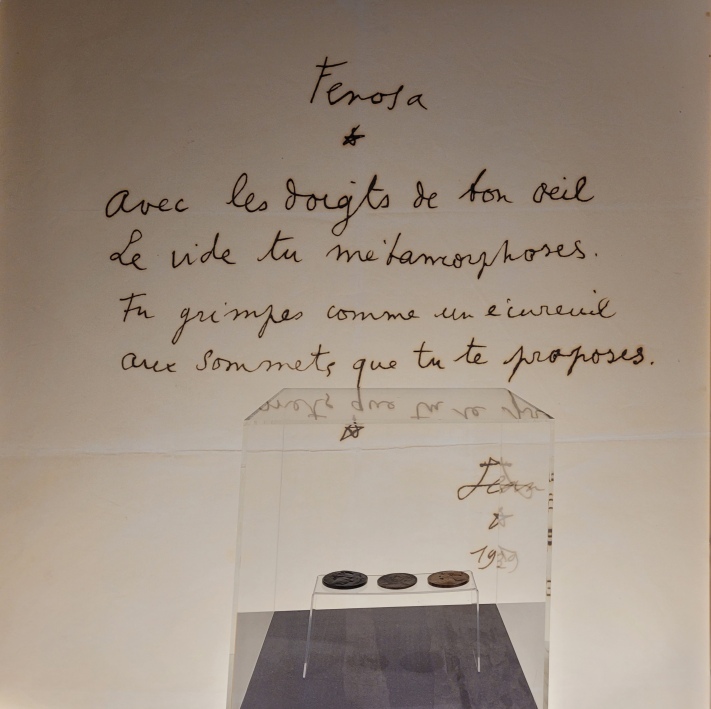 Fenosa
avec les doigts de bon oeil
Le vide tu métamorphoses.
Tu grimpes comme un écureuil
aux sommets que tu te proposes.
Jean